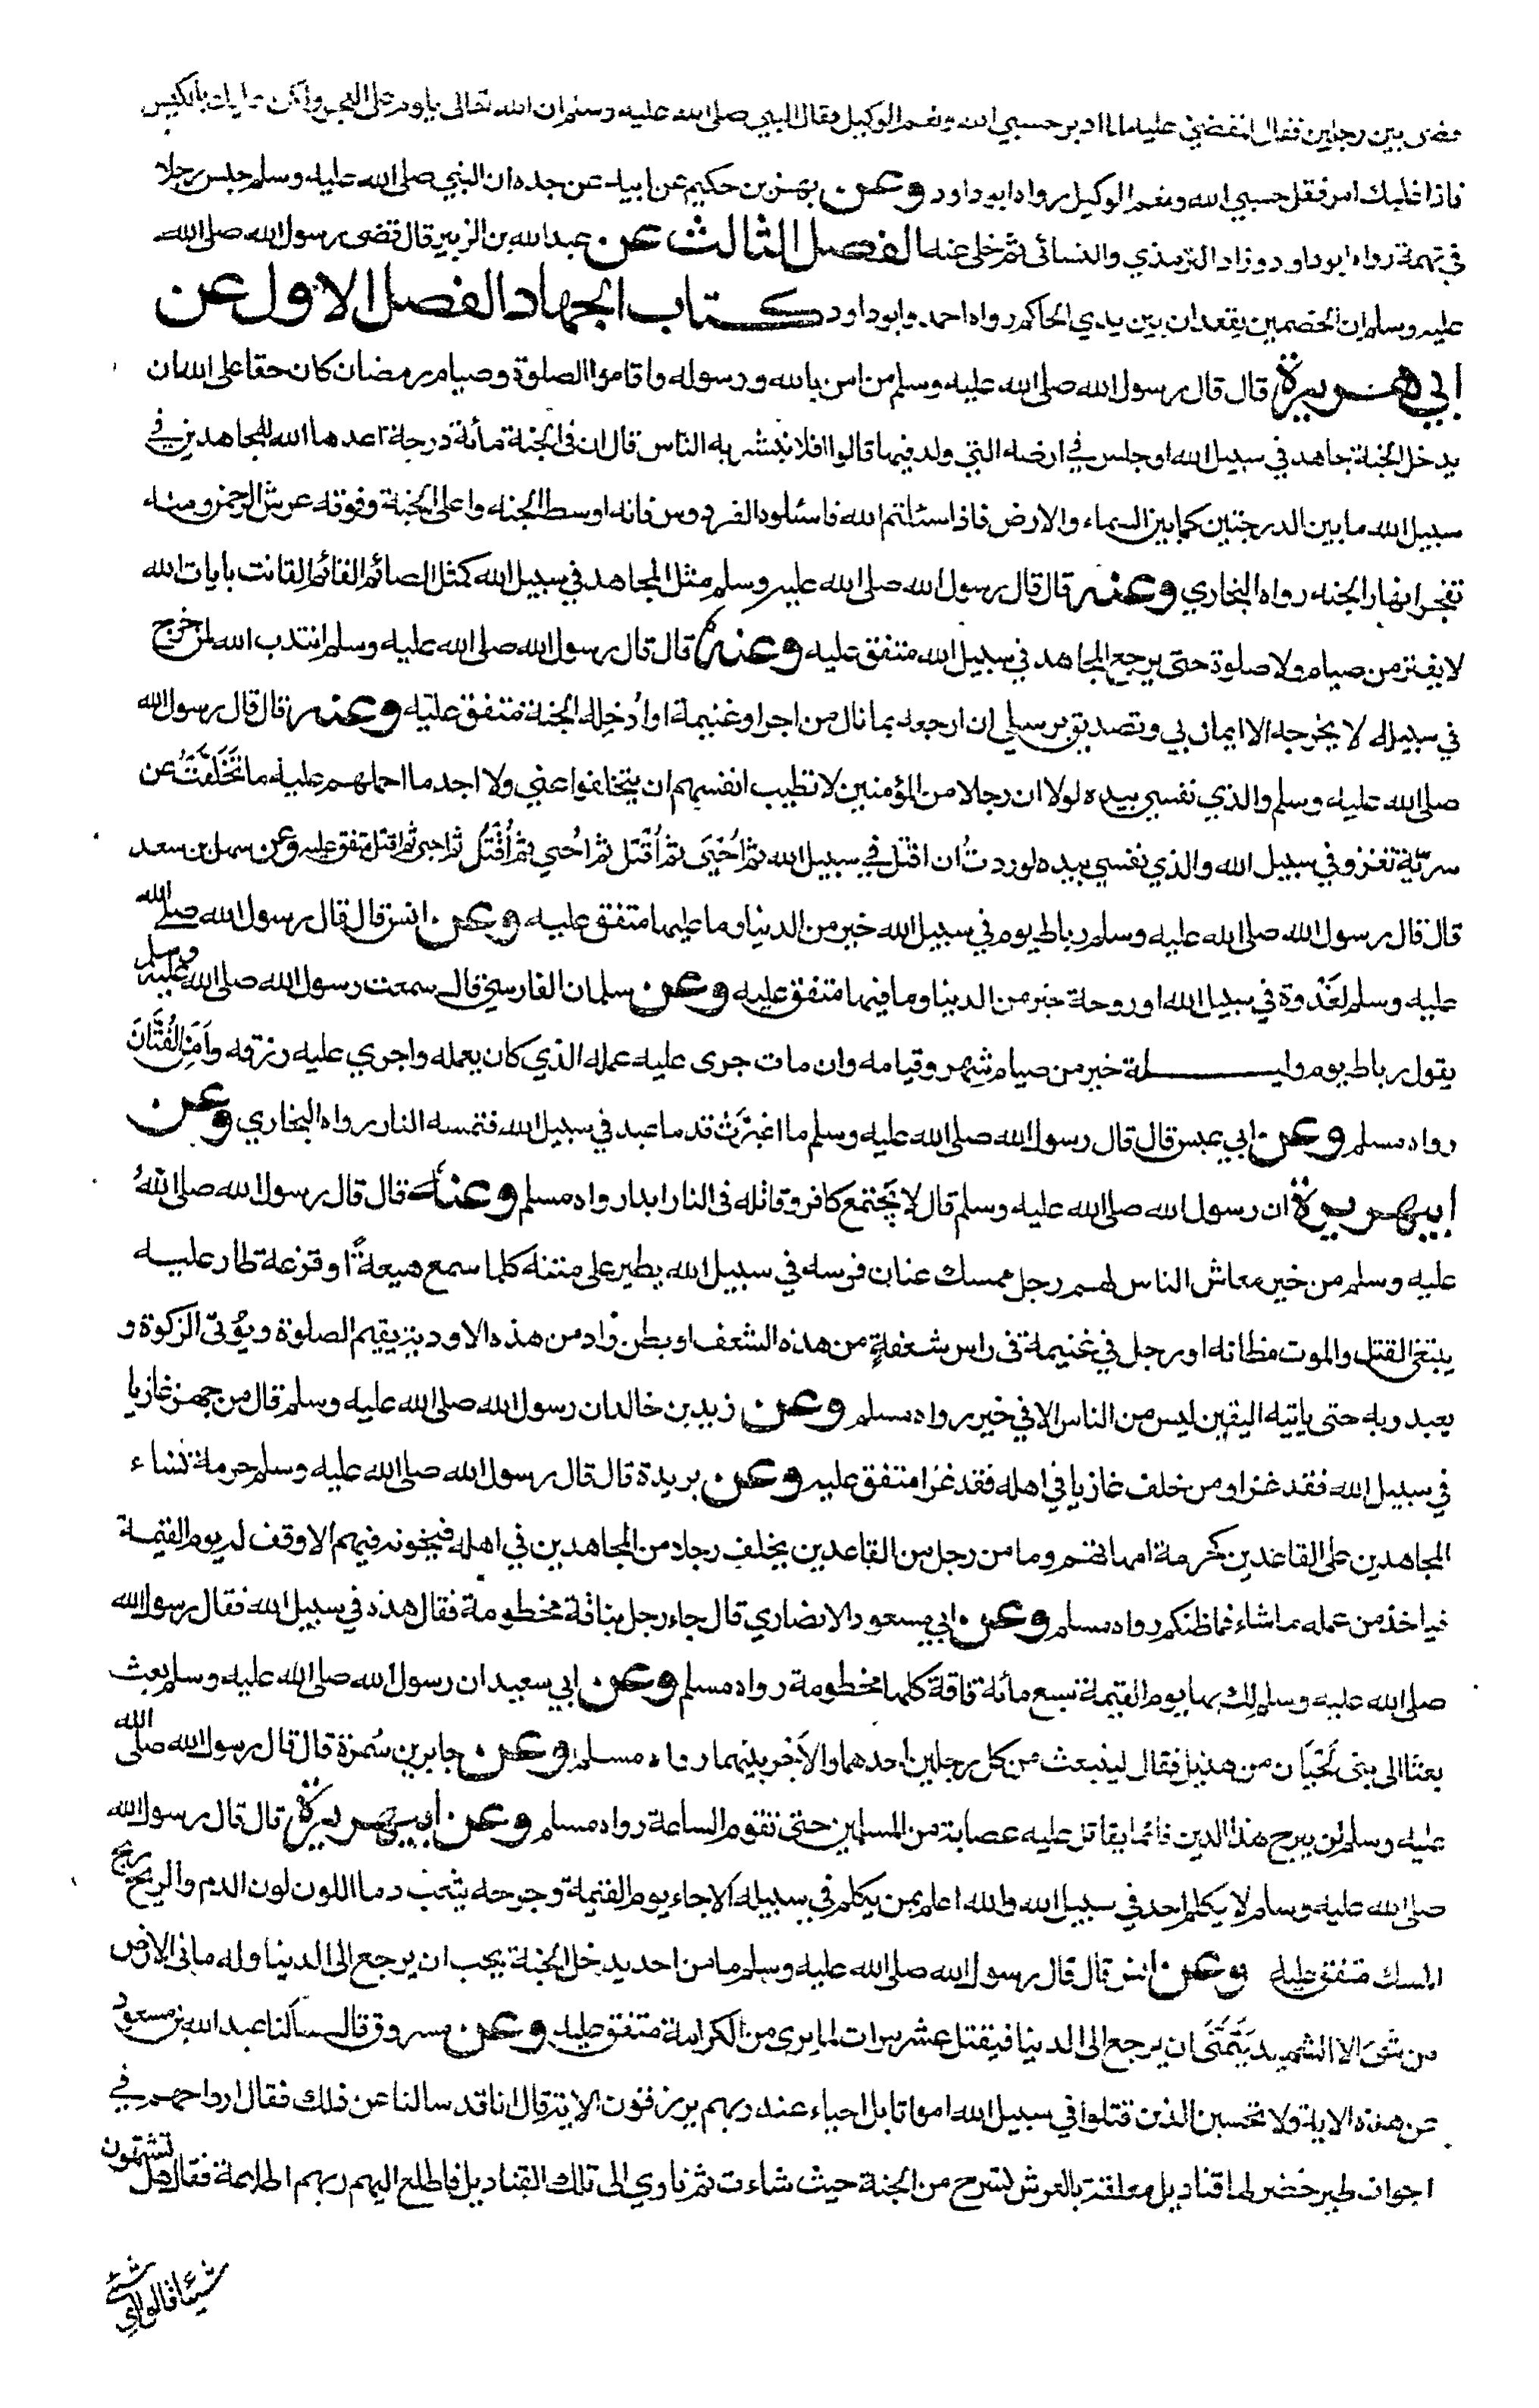 قضى بين رجلين فقال المقضي عليه لما ادبر حسبي الله ونعم الوكيل فقال النبي صلى الله عليه وسلم ان الله تعالى يلوم على العجز ولكن عليك بالكيس
فاذا غلبك امر فقل حسبي الله ونعم الوكيل رواه ابو داود وعن بهز بن حكيم عن ابيه عن جده ان النبي صلى الله عليه وسلم حبس رجلا
في تهمة رواه ابو داود وزاد الترمذي والنسائى ثم خلى عنه الفصل الثالث عن عبد الله بن الزبير قال قضى رسول الله صلى الله
عليه وسلم ان الخصمين يقعدان بين يدي الحاكم رواه احمد وابو داود كتاب الجهاد الفصل الاول عن
ابي هريرة قال قال رسول الله صلى الله عليه وسلم من امن بالله ورسوله واقاموا الصلوة وصيام رمضان كان حقا على الله ان
يدخل الجنة جاهد في سبيل الله او جلس في ارضه التي ولد فيها قالوا افلا نبشر به الناس قال ان فى الجنة مائة درجة اعدها الله للمجاهدين في
سبيل الله ما بين الدرجتين كما بين السماء والارض فاذا سئلتم الله فاسئلوه الفردوس فانه اوسط الجنه واعلى الجنة وفوقه عرش الرحمن ومنه
تفجر انهار الجنه رواه البخاري وعنه قال قال رسول الله صلى الله عليه وسلم مثل المجاهد في سبيل الله كمثل الصائم القائم القانت بايات الله
لا يفتر من صيام ولا صلوة حتى يرجع المجاهد في سبيل الله متفق عليه وعنه قال قال رسول الله صلى الله عليه وسلم انتدب الله لمن خرج
في سبيله لا يخرجه الا ايمان بي وتصديق برسلي ان ارجعه بما نال من اجر او غنيمة او اُدخِله الجنة متفق عليه وعنه قال قال رسول الله
صلى الله عليه وسلم والذي نفسي بيده لولا ان رجالا من المؤمنين لا تطيب انفسهم ان يتخلفوا عني ولا اجد ما احملهم عليه ما تَخَلَّفَتُ عن
سريّة تغزو في سبيل الله والذي نفسي بيده لوددتُ ان اقتل في سبيل الله ثم اُحْيَى ثم اُقْتَل ثم احْيي ثم اُقْتَلُ ثم احيى ثم اقتل متفق عليه وعن سهل بن سعد
قال قال رسول الله صلى الله عليه وسلم رباط يوم في سبيل الله خير من الدنيا وما عليها متفق عليه وعن انس قال قال رسول الله صلى الله
عليه وسلم لغَدْوة في سبيل الله او روحة خير من الدنيا وما فيها متفق عليه وعن سلمان الفارسي قال سمعت رسول الله صلى الله عليه وسلم
يقول رباط يوم وليلة خير من صيام شهر وقيامه وان مات جرى عليه عمله الذي كان يعمله واجري عليه رزقه وأمن الفُتَّانَ
رواه مسلم وعن ابي عبس قال قال رسول الله صلى الله عليه وسلم ما اغبرَّتْ قدما عبد في سبيل الله فتمسه النار رواه البخاري وعن
ابيهريرة ان رسول الله صلى الله عليه وسلم قال لا يجتمع كافر وقاتله فى النار ابدا رواه مسلم وعنه قال قال رسول الله صلى اللهُ
عليه وسلم من خير معاش الناس لهم رجل ممسك عنان فرسه في سبيل الله يطير على متنه كلما سمع هيعةً او قزعة طار عليه
يبتغى القتل والموت مظانه او رجل في غنيمة فى راس شعفةٍ من هذه الشعف او بطن وَاد من هذه الاودية يقيم الصلوة ويُؤتى الزكوة و
يعبد ربه حتى ياتيه اليقين ليس من الناس الا في خير رواه مسلم وعن زيد بن خالد ان رسول الله صلى الله عليه وسلم قال من جهز غازيا
في سبيل الله فقد غزا ومن خلف غازيا في اهله فقد غزا متفق عليه وعن بريدة قال قال رسول الله صلى الله عليه وسلم حرمة نساء
المجاهدين على القاعدين كحرمة امهاتهم وما من رجل من القاعدين يخلف رجلا من المجاهدين في اهله فيخونه فيهم الا وقف له يوم القيمة
فياخذ من عمله ما شاء فما ظنكم رواه مسلم وعن ابي مسعود الانصاري قال جاء رجل بناقة مخطومة فقال هذه في سبيل الله فقال رسول الله
صلى الله عليه وسلم لك بها يوم القيمة سبع مائة ناقة كلها مخطومة رواه مسلم وعن ابي سعيد ان رسول الله صلى الله عليه وسلم بعث
بعثا الى بنى لَحْيَان من هذيل فقال لينبعث من كل رجلين احدهما والاجر بينهما رواه مسلم وعن جابر بن سُمرة قال قال رسول الله صلى الله
عليه وسلم لن يبرح هذا الدين قائما يقاتل عليه عصابة من المسلمين حتى تقوم الساعة رواه مسلم وعن ابيهريرة قال قال رسول الله
صلى الله عليه وسلم لا يكلم احد في سبيل الله والله اعلم بمن يكلم في سبيله الا جاء يوم القيمة وجرحه يثعب دما اللون لون الدم والريح ريح
المسك متفق عليه وعن انس قال قال رسول الله صلى الله عليه وسلم ما من احد يدخل الجنة يحب ان يرجع الى الدنيا وله ما فى الارض
من شيء الا الشهيد يَتَمَنَّى ان يرجع الى الدنيا فيقتل عشر مرات لما يرى من الكرامة متفق عليه وعن مسروق قال سالنا عبد الله بن مسعود
عن هذه الاية ولا تحسبن الذين قتلوا في سبيل الله امواتا بل احياء عند ربهم يرزقون الاية قال انا قد سالنا عن ذلك فقال ارواحهم في
اجواف طير خضر لها قناديل معلقة بالعرش تسرح من الجنة حيث شاءت ثم تاوي الى تلك القناديل فاطلع اليهم ربهم اطلاعة فقال هل تشتهون
شيئا قالوا اي شئ